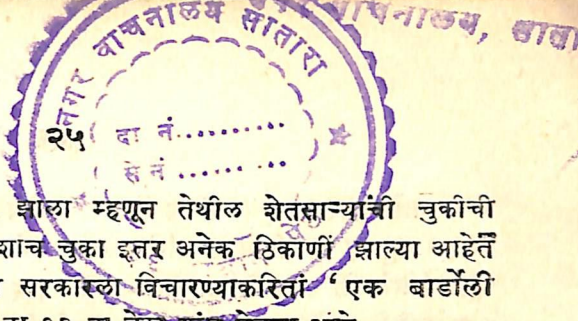 वाचनालय, साता
नगर वाचनालय सातारा
२५
दा नं...........
से नं...........
झाला म्हणून तेथील शेतसाऱ्यांची चुकीची
शाच चुका इतर अनेक ठिकाणीं झाल्या आहेत
सरकारला विचारण्याकरितां ‘एक बार्डोली